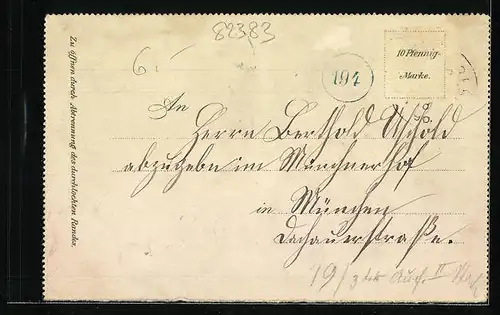 82383
6.-
10 Pfennig-
Marke.
194
An
Herrn Berthold
abzugeben im Münchnerhof
in München
Dachauerstraße.
19/3
II
Zu öffnen durch Abtrennung des durchlochten Randes.